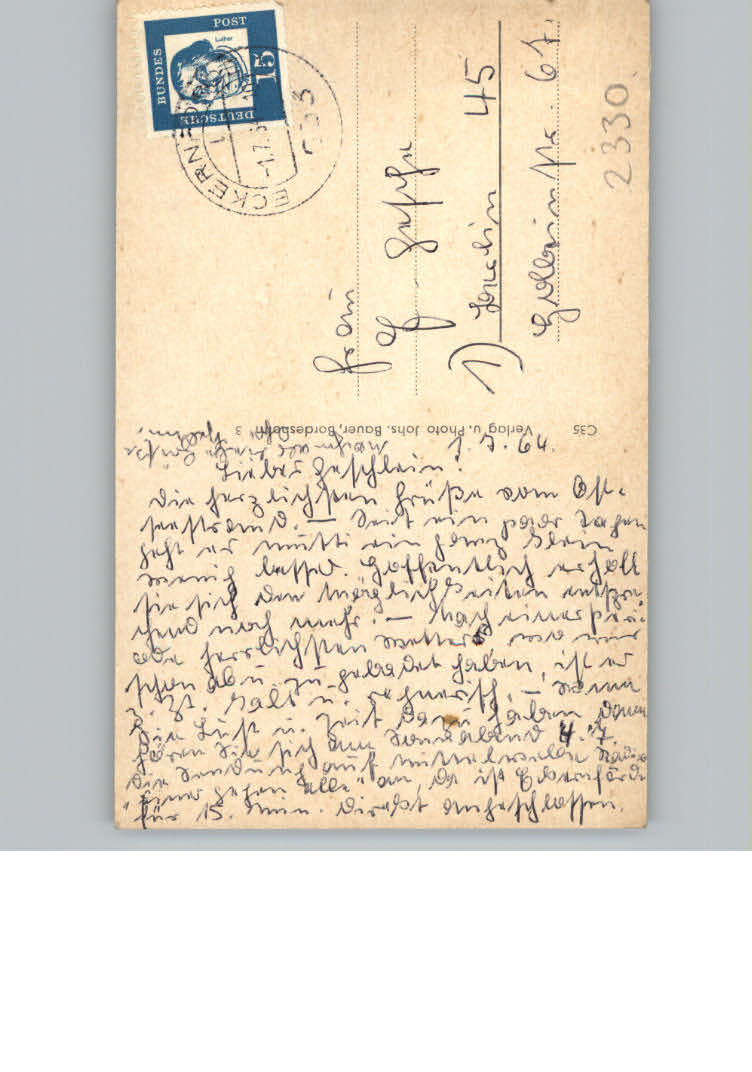 DEUTSCHE
BUNDES
POST
Luther
15
ECKERN
-1.7.
Frau
1) Berlin 45
67
2330
C35 Verlag u. Photo Johs. Bauer, Bordesholm 3
1.7.64.
Liebes Geschlein!
Die herzlichsten Grüße vom Ost-
seestrand. – Seit ein paar Tagen
geht es Mutti ein ganz klein
wenig besser. Hoffentlich erholt
sie sich den Möglichkeiten entspre-
chend noch mehr. – Nach einer Periode
herrlichsten Wetters, wo wir
schon ab u. zu gebadet haben, ist es
z. Zt. kalt u. regnerisch. – Wenn
Sie Lust u. Zeit dazu haben, dann
hören Sie sich am Sonnabend 4.7.
die Sendung auf Mittelwelle
"gehen alle" an, da ist Eckernförde
für 15 Min. direkt angeschlossen.